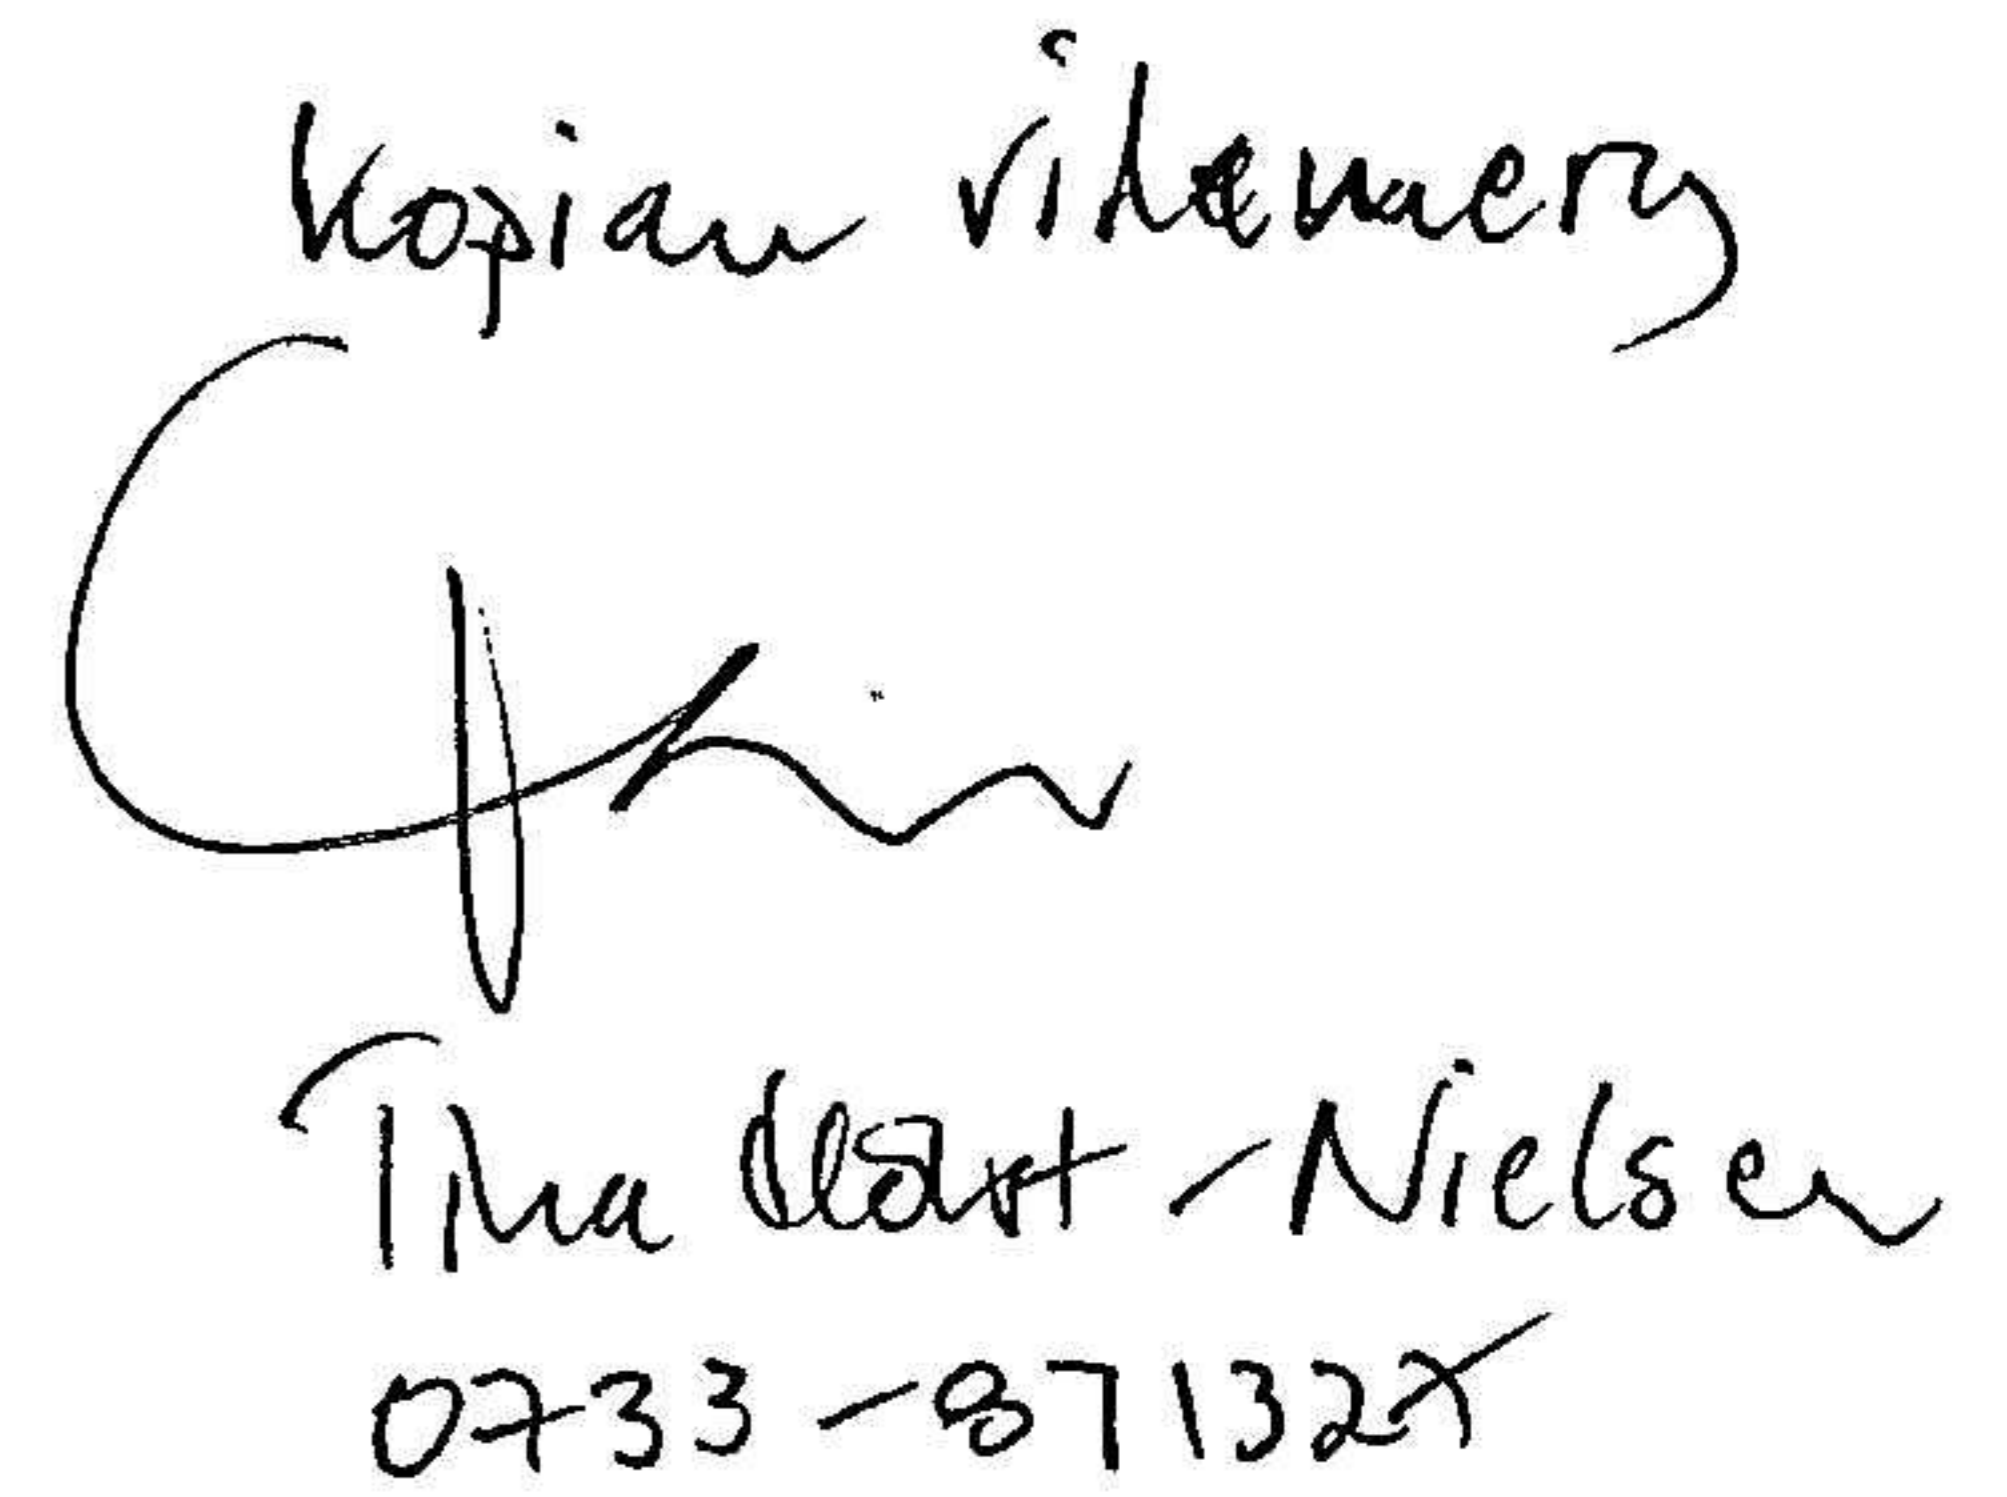 Kopian vidimeras
Tina
Tina -Nielsen
0733-871327